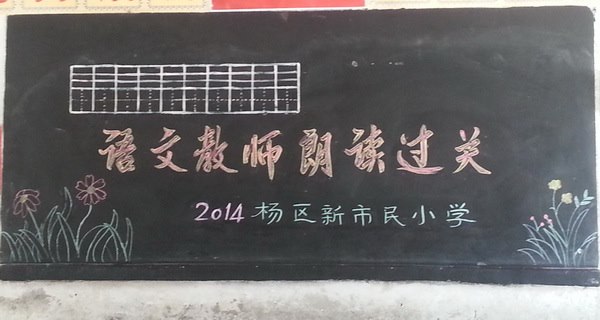 语文教师朗读过关
2014 杨区新市民小学